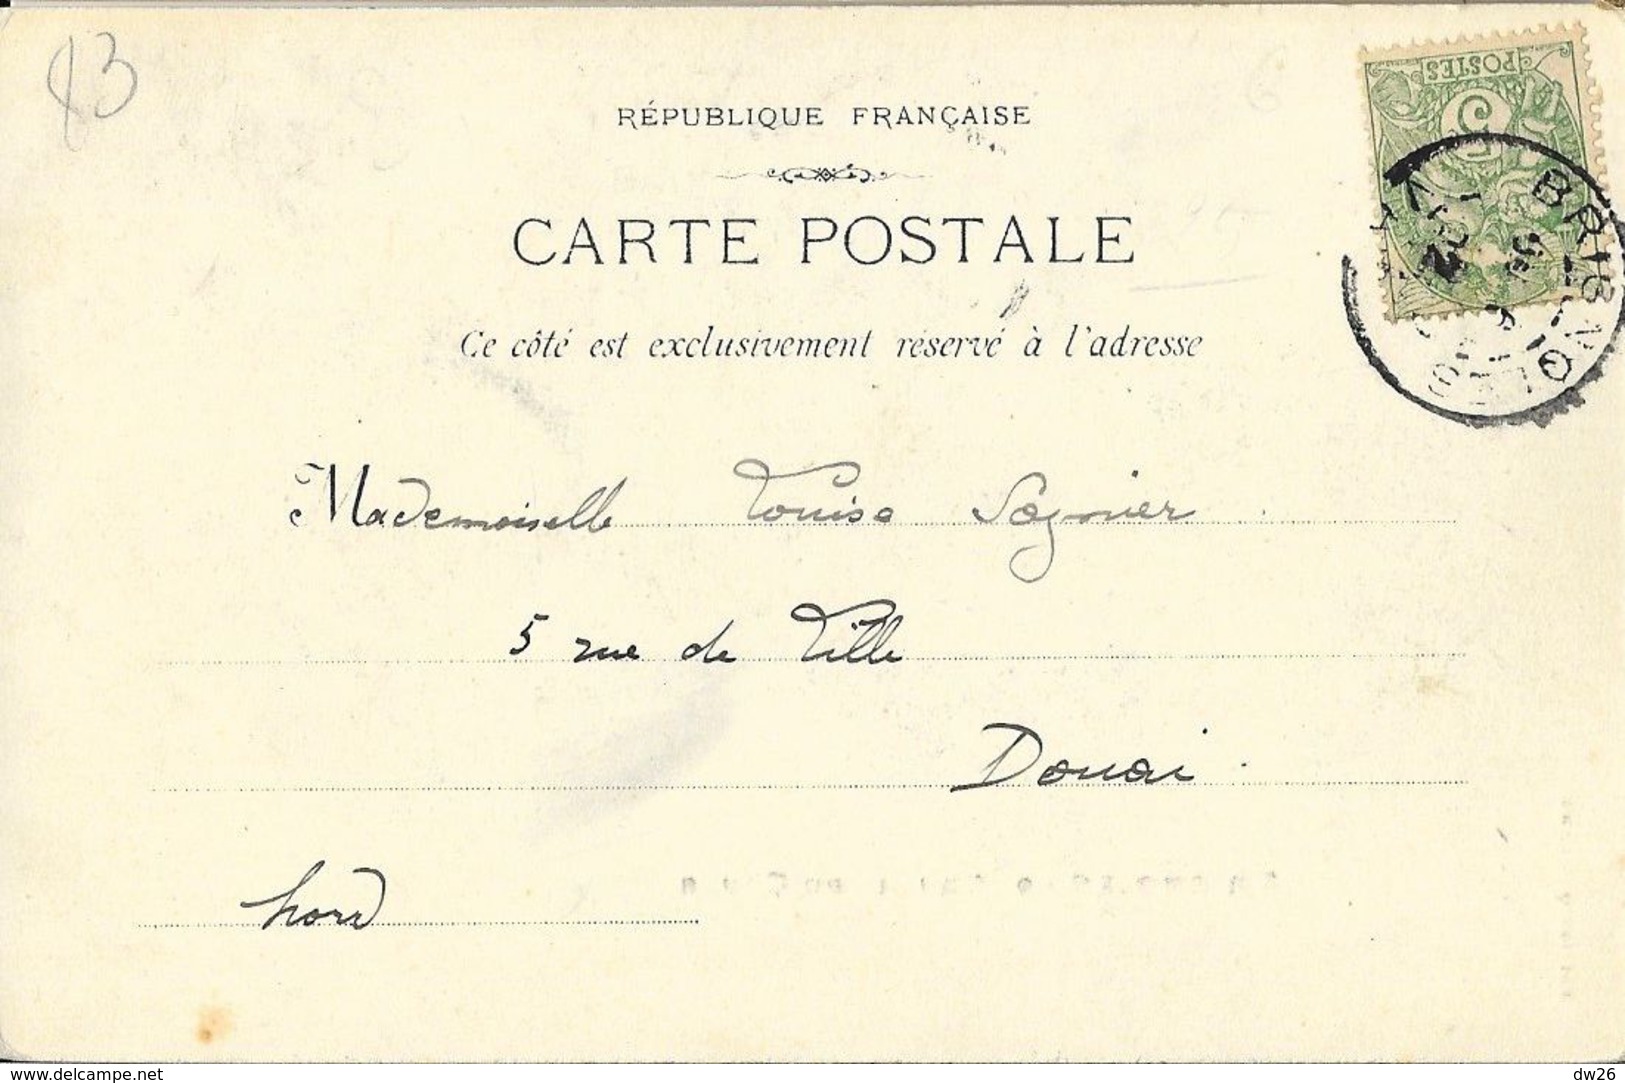 83
RÉPUBLIQUE FRANÇAISE
POSTES
5
CARTE POSTALE
BRIGNOLES
Ce côté est exclusivement réservé à l'adresse
Mademoiselle Louise Sagnier
5 rue de Lille
Douai
Nord
www.delcampe.net
dw26